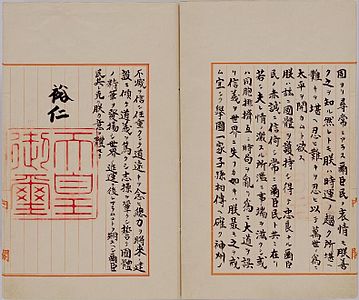 固ヨリ尋常ニアラス爾臣民ノ衷情モ朕善
ク之ヲ知ル然レトモ朕ハ時運ノ趨ク所堪ヘ
難キヲ堪ヘ忍ヒ難キヲ忍ヒ以テ萬世ノ為ニ
太平ヲ開カムト欲ス
朕ハ茲ニ國體ヲ護持シ得テ忠良ナル爾臣
民ノ赤誠ニ信倚シ常ニ爾臣民ト共ニ在リ
若シ夫レ情ノ激スル所濫ニ事端ヲ滋クシ或
ハ同胞排擠互ニ時局ヲ亂リ為ニ大道ヲ誤
リ信義ヲ世界ニ失フカ如キハ朕最モ之ヲ戒
ム宜シク擧國一家子孫相傳ヘ確ク神州ノ
不滅ヲ信シ任重クシテ道遠キヲ念ヒ總力ヲ將來ノ建
設ニ傾ケ道義ヲ篤クシ志操ヲ鞏クシ誓テ國體
ノ精華ヲ發揚シ世界ノ進運ニ後レサラムコトヲ期スヘシ爾臣
民其レ克ク朕カ意ヲ體セヨ
裕仁
天皇
御璽